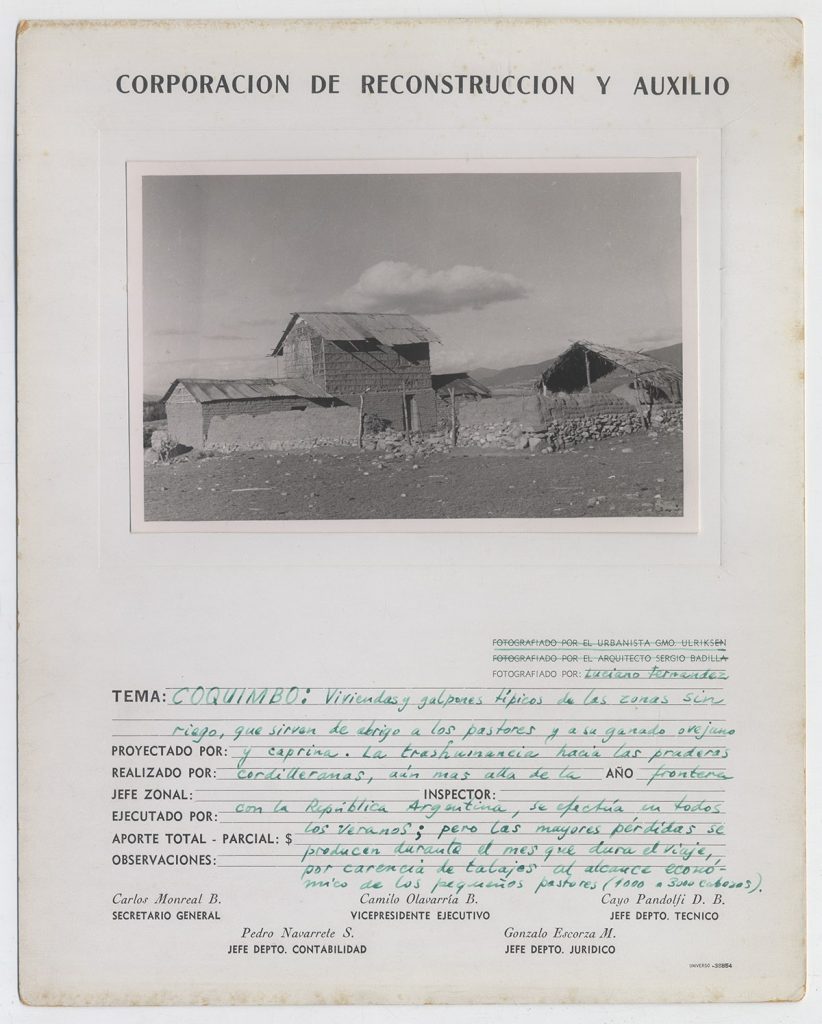 CORPORACION DE RECONSTRUCCION Y AUXILIO
FOTOGRAFIADO POR EL URBANISTA GMO. ULRIKSEN
FOTOGRAFIADO POR EL ARQUITECTO SERGIO BADILLA
FOTOGRAFIADO POR: Luciano Fernandez
TEMA: COQUIMBO: Viviendas y galpones típicos de las zonas sin
riego, que sirven de abrigo a los pastores y a su ganado ovejuno
PROYECTADO POR: y caprina. La trashumancia hacia las praderas
REALIZADO POR: cordilleranas, aún mas alla de la AÑO frontera
JEFE ZONAL: INSPECTOR:
EJECUTADO POR: con la República Argentina, se efectúa en todos
APORTE TOTAL - PARCIAL: $ los veranos; pero las mayores pérdidas se
OBSERVACIONES: producen durante el mes que dura el viaje,
por carencia de talajes al alcance econó-
mico de los pequeños pastores (1000 a 3000 cabezas).
Carlos Monreal B. Camilo Olavarría B. Cayo Pandolfi D. B.
SECRETARIO GENERAL VICEPRESIDENTE EJECUTIVO JEFE DEPTO. TECNICO
Pedro Navarrete S. Gonzalo Escorza M.
JEFE DEPTO. CONTABILIDAD JEFE DEPTO. JURIDICO